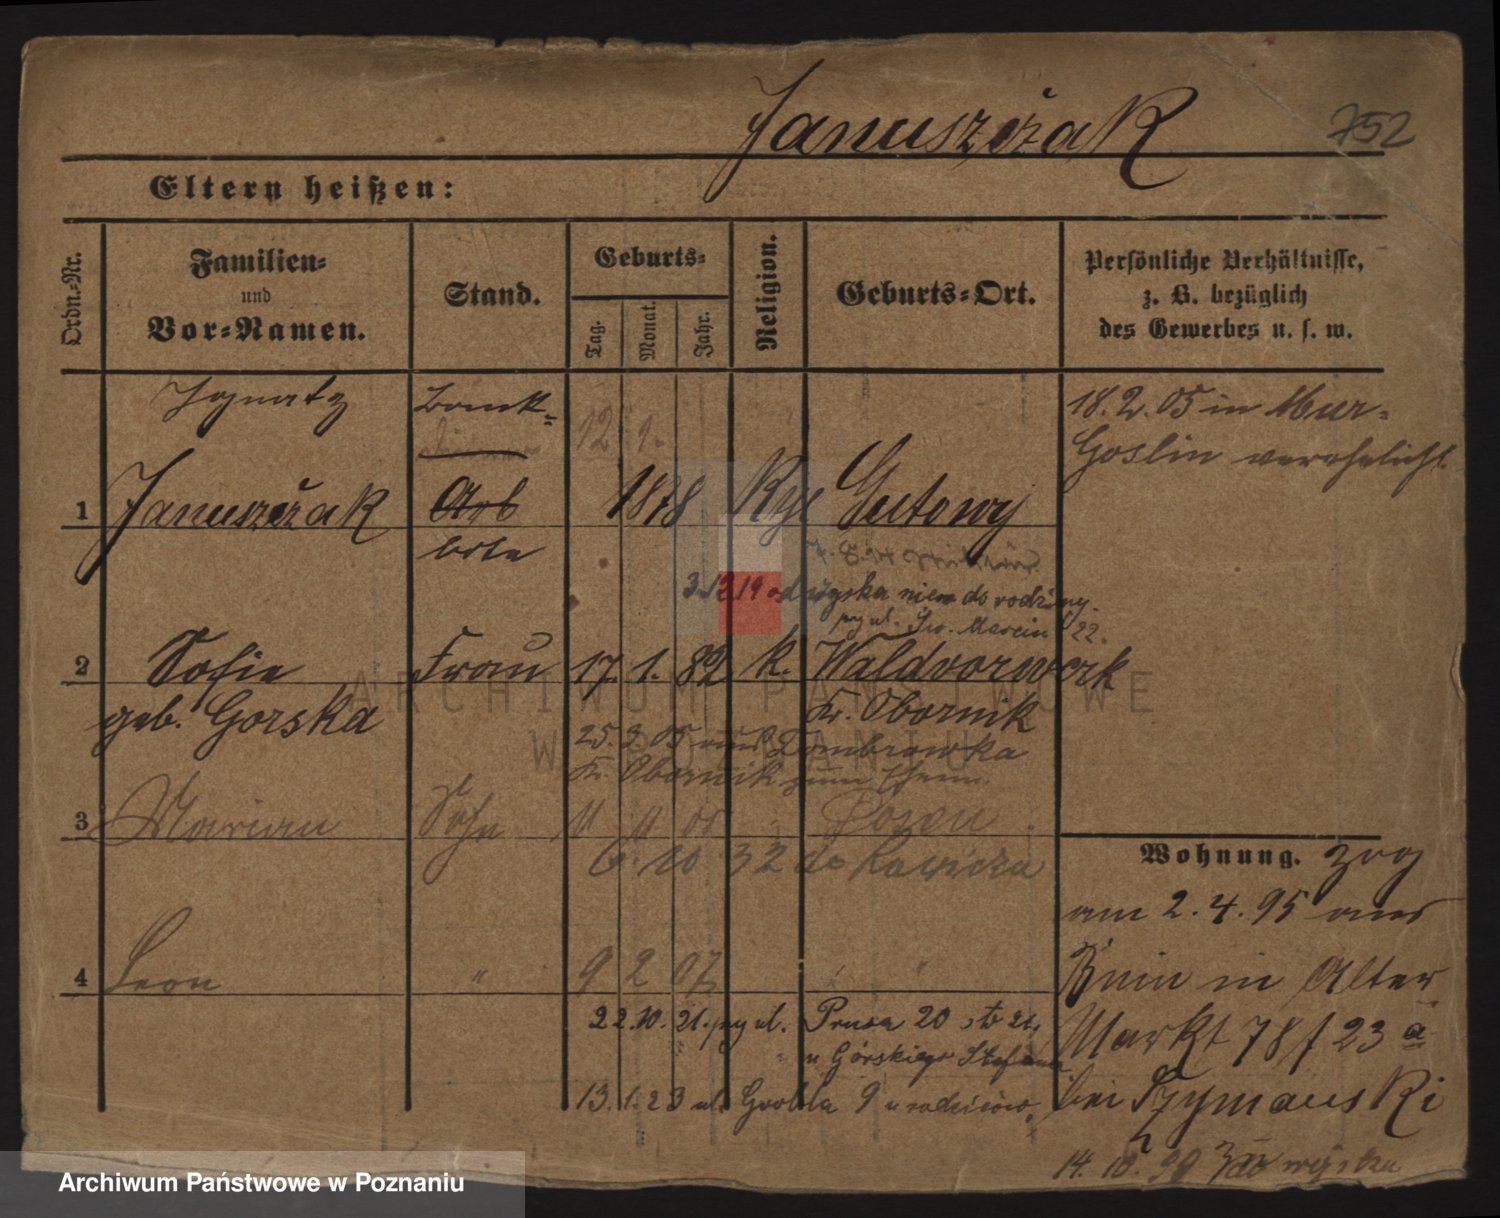 Januszczak 752
Eltern heißen:
Ordn.-Nr.
Familien-
und
Vor-Namen.
Stand.
Geburts-
Tag.
Monat.
Jahr.
Religion.
Geburts-Ort.
Persönliche Verhältnisse,
z. B. bezüglich
des Gewerbes u. s. w.
Ignatz
12 1.
18.2.05 in Mur-
Goslin verehelicht
1 Januszczak Arb 1878 Gutowy
3.12.19 od wojska niem do rodziny.
przy ul. Św. Marcin 22.
2 Sofie Frau 17. 1. 82 k. Waldvorwerk
geb. Gorska Kr. Obornik
25. 3. 05 aus Dombrowka
Kr. Obornik zum Ehem.
3 Marian Sohn 11 11 05 Posen
6. 10 32 do Rawicza
Wohnung. zog
am 2.4.95 aus
Bnin in Alter
Markt 78/23 a
bei Szymanski
4 Leon " 9 2 07 "
22.10.21. przy ul. Prusa 20
u Górskiego Stefana
13.1.23 ul. Grobla 9 u rodziców.
14.10.99 wojska
ARCHIWUM PAŃSTWOWE
W POZNANIU
Archiwum Państwowe w Poznaniu